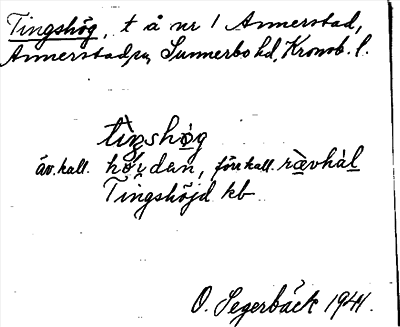 Tingshög, t å nr 1 Annerstad,
Annerstad sn, Sunnerbo hd, Kronob. l.
tiŋshög
äv. kall. höɡdan, förr kall. rävhàl
Tingshöjd kb
O. Segerbäck 1941.